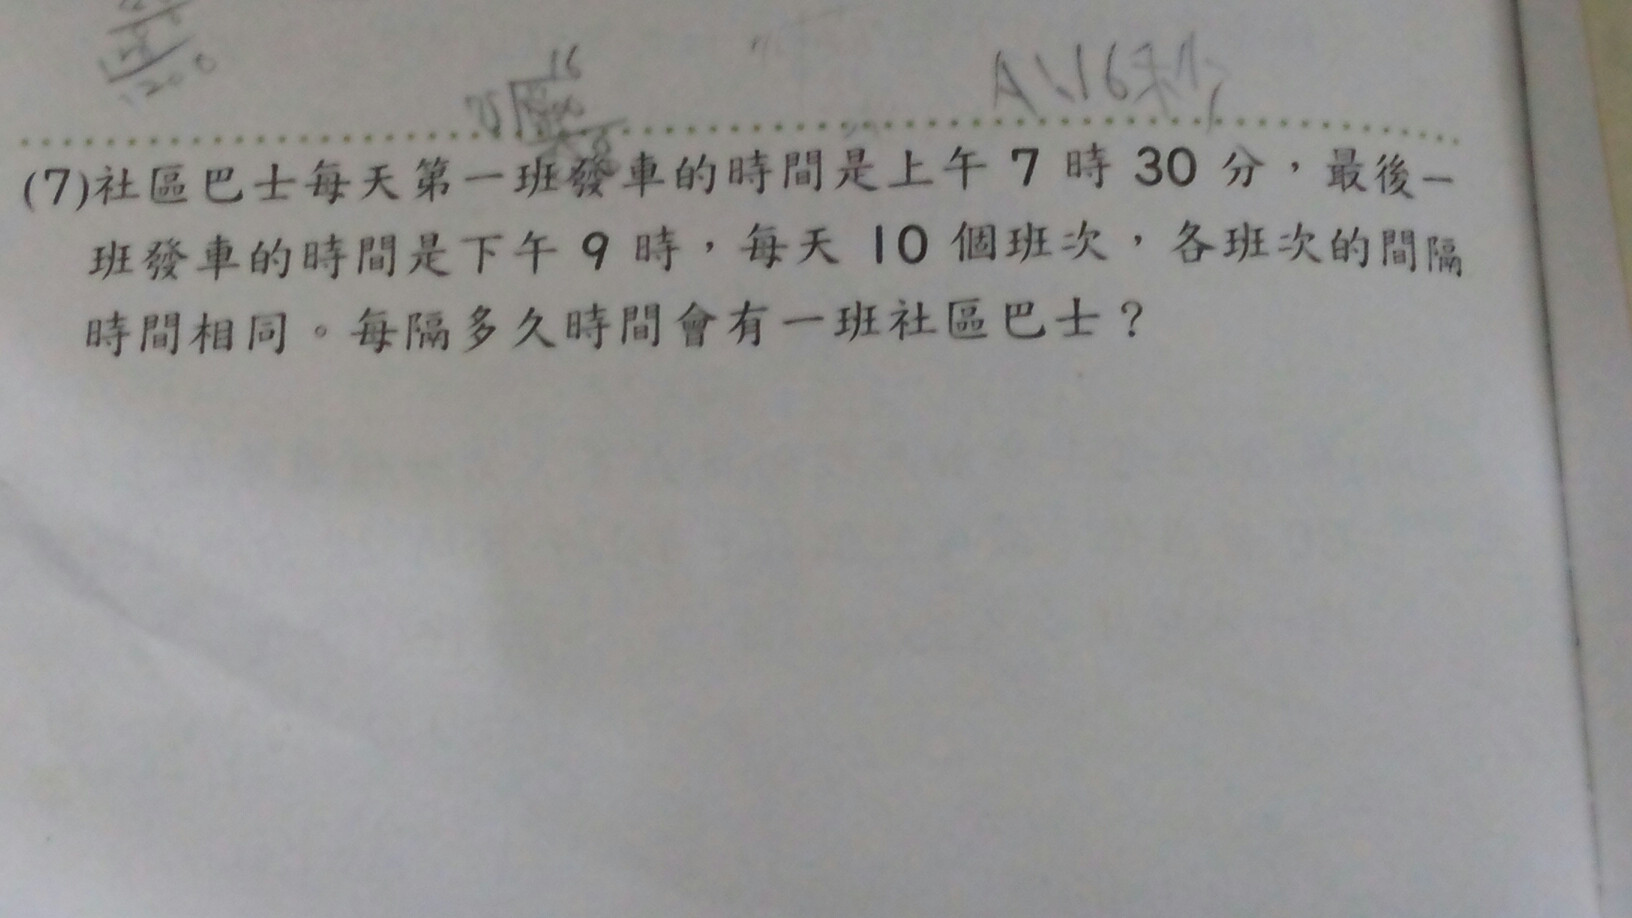 1200
16
A:16秒
(7)社區巴士每天第一班發車的時間是上午 7 時 30 分，最後一
班發車的時間是下午 9 時，每天 10 個班次，各班次的間隔
時間相同。每隔多久時間會有一班社區巴士？